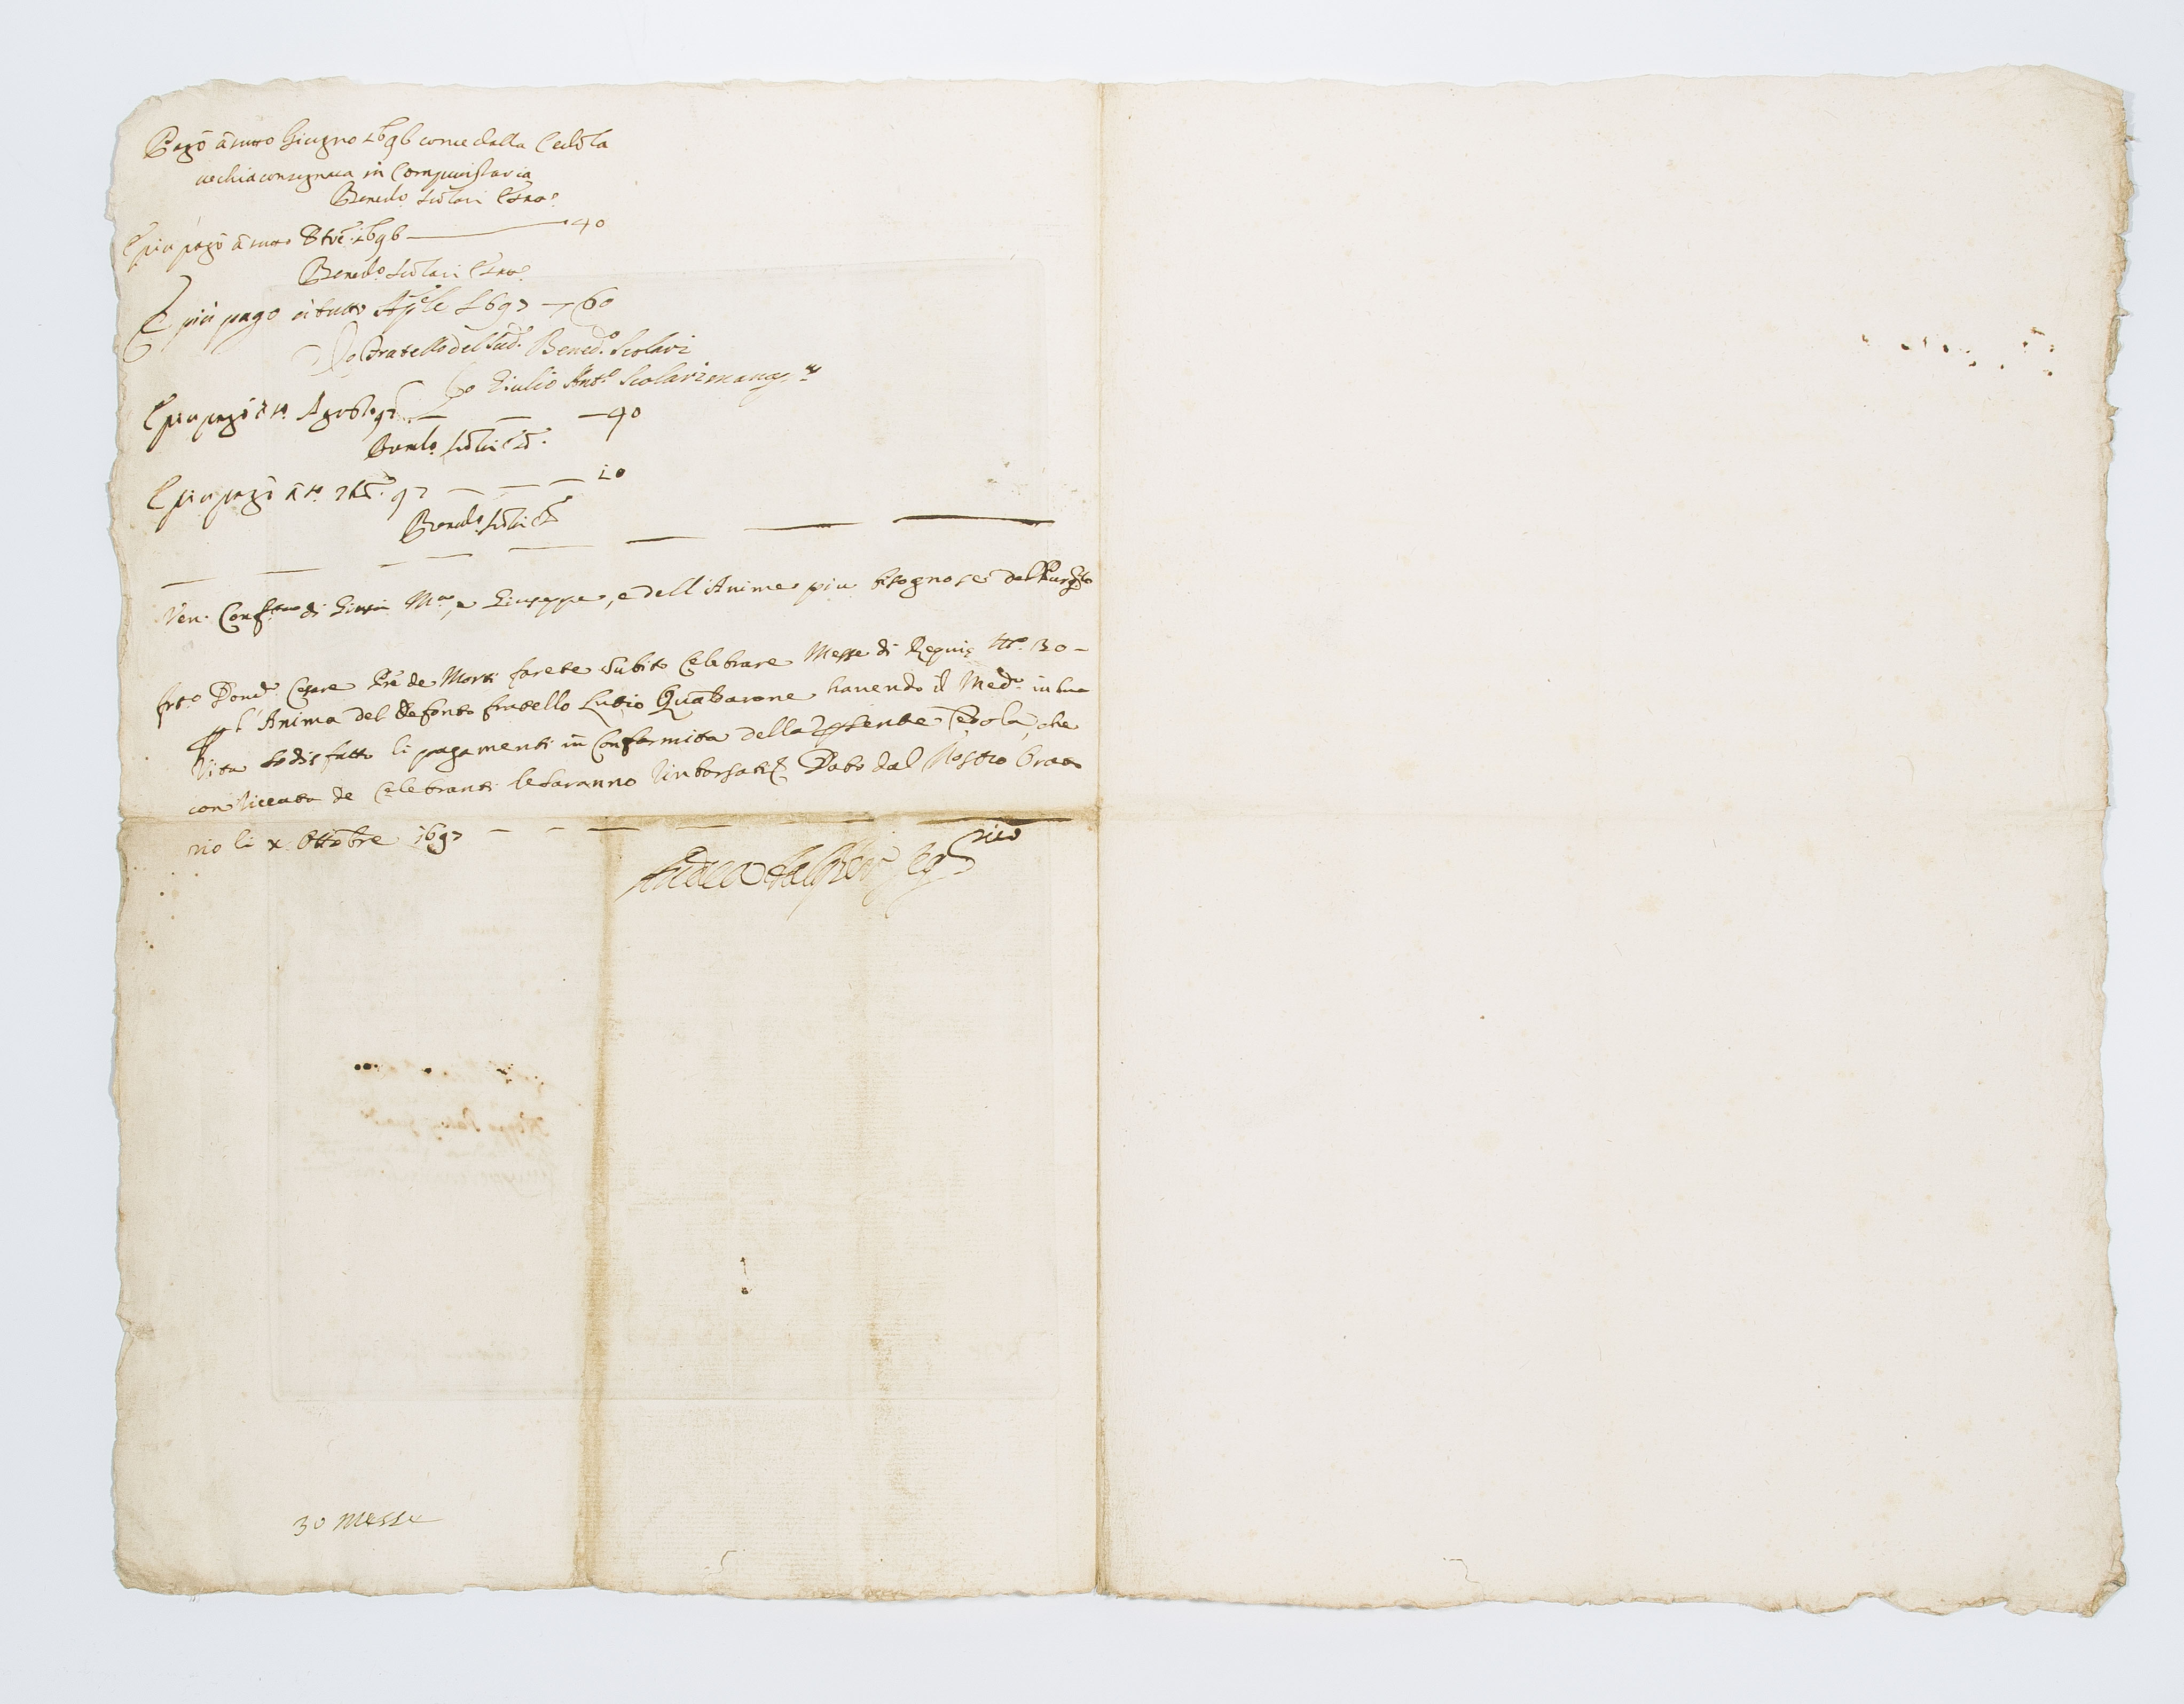 Pagò à tutto Giugno 1696 come dalla Cedola
vechia consegnata in Computistaria
Bened.o Scolari
E piu pagò à tutto 8bre 1696 — 40
Bened.o Scolari
E più pago à tutto Aple 1697 — 60
Fratello del Sud.o Bened.o Scolari
Io Giulio Ant.o Scolari
E piu pagò à tt.o Agosto 97 — — — 40
Bened.o
E piu pagò à tt.o 7bre 97 — — — 20
Bened.o
Ven. di Giesù M.a, e Giuseppe, e dell'Anime piu bisognose del Purg.rio
Cesare Prē de Morti farete Subito Celebrare Messe di Requie N.o 30 —
p l'Anima del defonto fratello Lutio havendo il Med.o in sua
Vita sodisfatto li pagamenti in Conformita della pſente Cedola, che
con ricevuta de Celebranti le saranno rimborsati Dato dal Nostro Orato
rio li x Ottobre 1697 — — — —
30 Messe